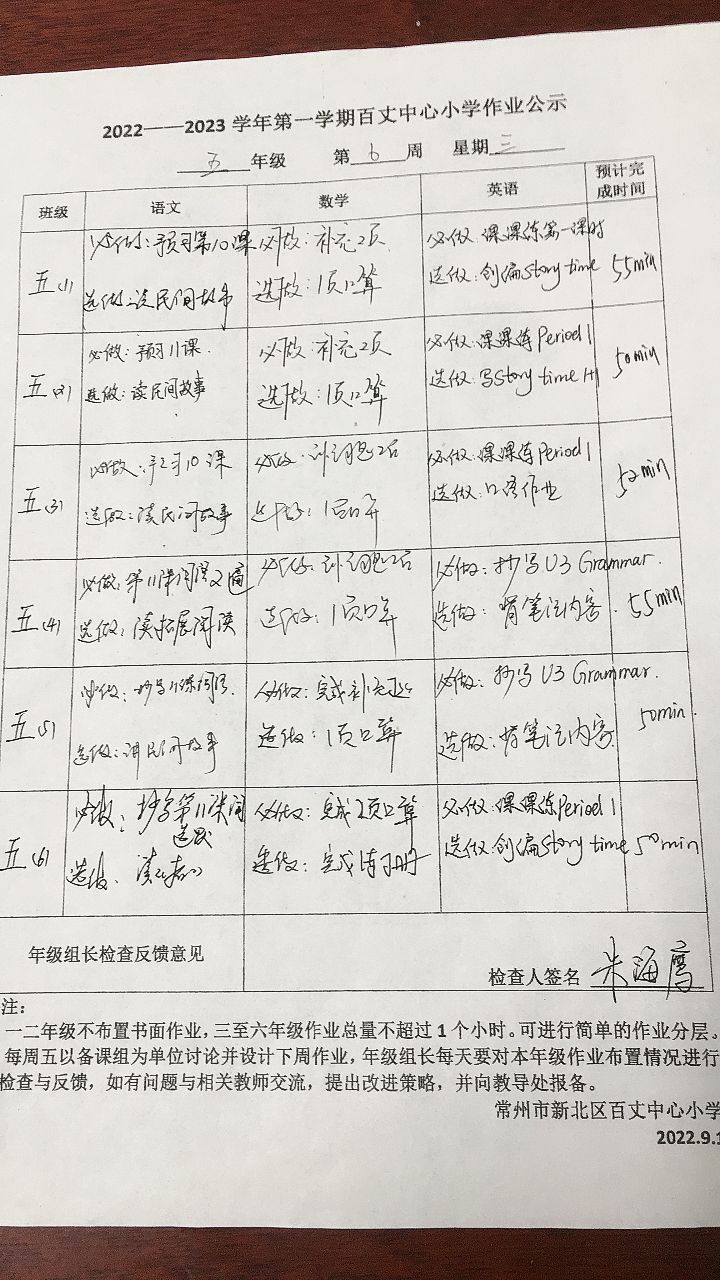 2022——2023 学年第一学期百丈中心小学作业公示
五 年级 第 6 周 星期 三
班级 语文 数学 英语 预计完成时间
五(1) 必做：预习第10课 必做：补充2页 必做：课课练第一课时 55min
选做：读民间故事 选做：1页口算 选做：创编Story time
五(2) 必做：预习11课. 必做：补充2页 必做：课课练Period 1 50min
选做：读民间故事 选做：1页口算 选做：写Story time
五(3) 必做：预习10课 必做： 必做：课课练Period 1 50min
选做：读民间故事 选做：1页口算 选做：口语作业
五(4) 必做：第11课词语2遍 必做： 必做：抄写U3 Grammar. 55min
选做：读拓展阅读 选做：1页口算 选做：背笔记内容.
五(5) 必做：抄写11课词语. 必做：完成补充 必做：抄写U3 Grammar. 50min.
选做：讲民间故事 选做：1页口算 选做：背笔记内容.
五(6) 必做：抄写第11课词 必做：完成2页口算 必做：课课练Period 1 50min
选做： 选做：完成练习册 选做：创编Story time
年级组长检查反馈意见
检查人签名 朱海鹰
注：
一二年级不布置书面作业，三至六年级作业总量不超过 1 个小时。可进行简单的作业分层。
每周五以备课组为单位讨论并设计下周作业，年级组长每天要对本年级作业布置情况进行
检查与反馈，如有问题与相关教师交流，提出改进策略，并向教导处报备。
常州市新北区百丈中心小学
2022.9.1